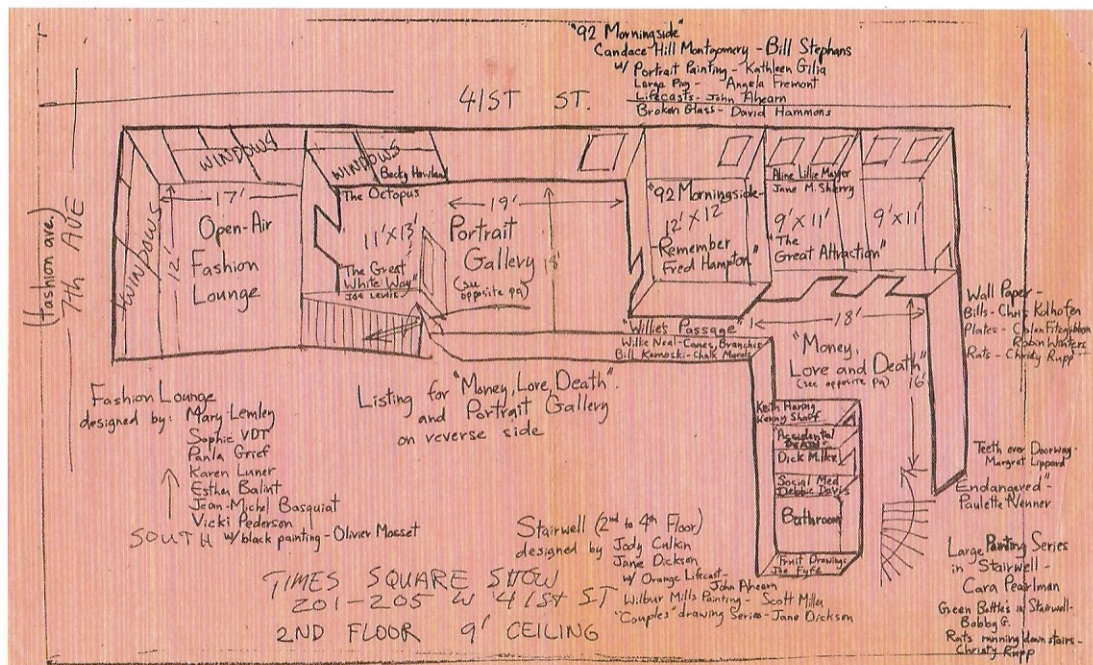 "92 Morningside"
Candace Hill Montgomery - Bill Stephans
w/ Portrait Painting - Kathleen Gilia
Large Pig - Angela Fremont
Lifecasts - John Ahearn
Broken Glass - David Hammons
41ST ST.
(fashion ave.)
7TH AVE
WINDOWS
WINDOWS
17'
12'
Open-Air
Fashion
Lounge
WINDOWS
Becky Howland
The Octopus
11'X13'
The Great
White Way"
Joe Lewis
19'
18'
Portrait
Gallery
(see
opposite pg)
"92 Morningside-
12'X12'
-Remember
Fred Hampton"
Aline Lillie Mayer
Jane M. Sherry
9'X11'
"The
Great Attraction"
9'X11'
"Willie's Passage"
Willie Neal-Canes, Branches
Bill Komoski-Chalk Murals
18'
16'
"Money,
Love and Death"
(see opposite pg)
Wall Paper -
Bills-Chris Kolhofen
Plates - Colen Fitzgibbon
Robin Winters
Rats - Christy Rupp
Keith Haring
Kenny Sharf
Accidental
DEATH
Dick Miller
Social Med.
Debbie Davis
Bathroom
Fruit Drawings
Joe Fyfe
Teeth over Doorway-
Margret Lippard
Endangered"-
Paulette Nenner
Large Painting Series
in Stairwell -
Cara Pearlman
Green Bottles in Stairwell-
Bobby G.
Rats running down stairs-
Christy Rupp
Fashion Lounge
designed by: Mary Lemley
Sophie VDT
Paula Grief
Karen Luner
Esther Balint
Jean-Michel Basquiat
Vicki Pederson
w/black painting - Olivier Mosset
SOUTH
Listing for "Money, Love, Death".
and Portrait Gallery
on reverse side
Stairwell (2nd to 4th Floor)
designed by Jody Culkin
Jane Dickson
w/ Orange Lifecast -
John Ahearn
Wilbur Mills Painting - Scott Miller
"Couples" drawing Series - Jane Dickson
TIMES SQUARE SHOW
201-205 W 41ST ST
2ND FLOOR 9' CEILING